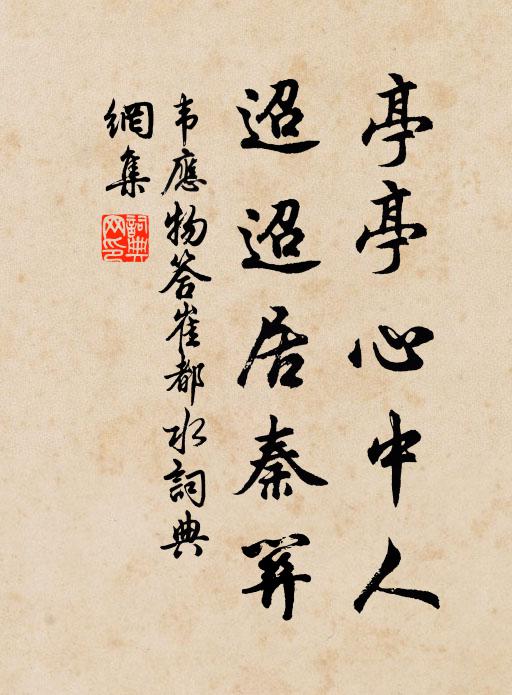 亭亭心中人
迢迢居秦關
韦應物答崔都水詞典
網集
詞典网印